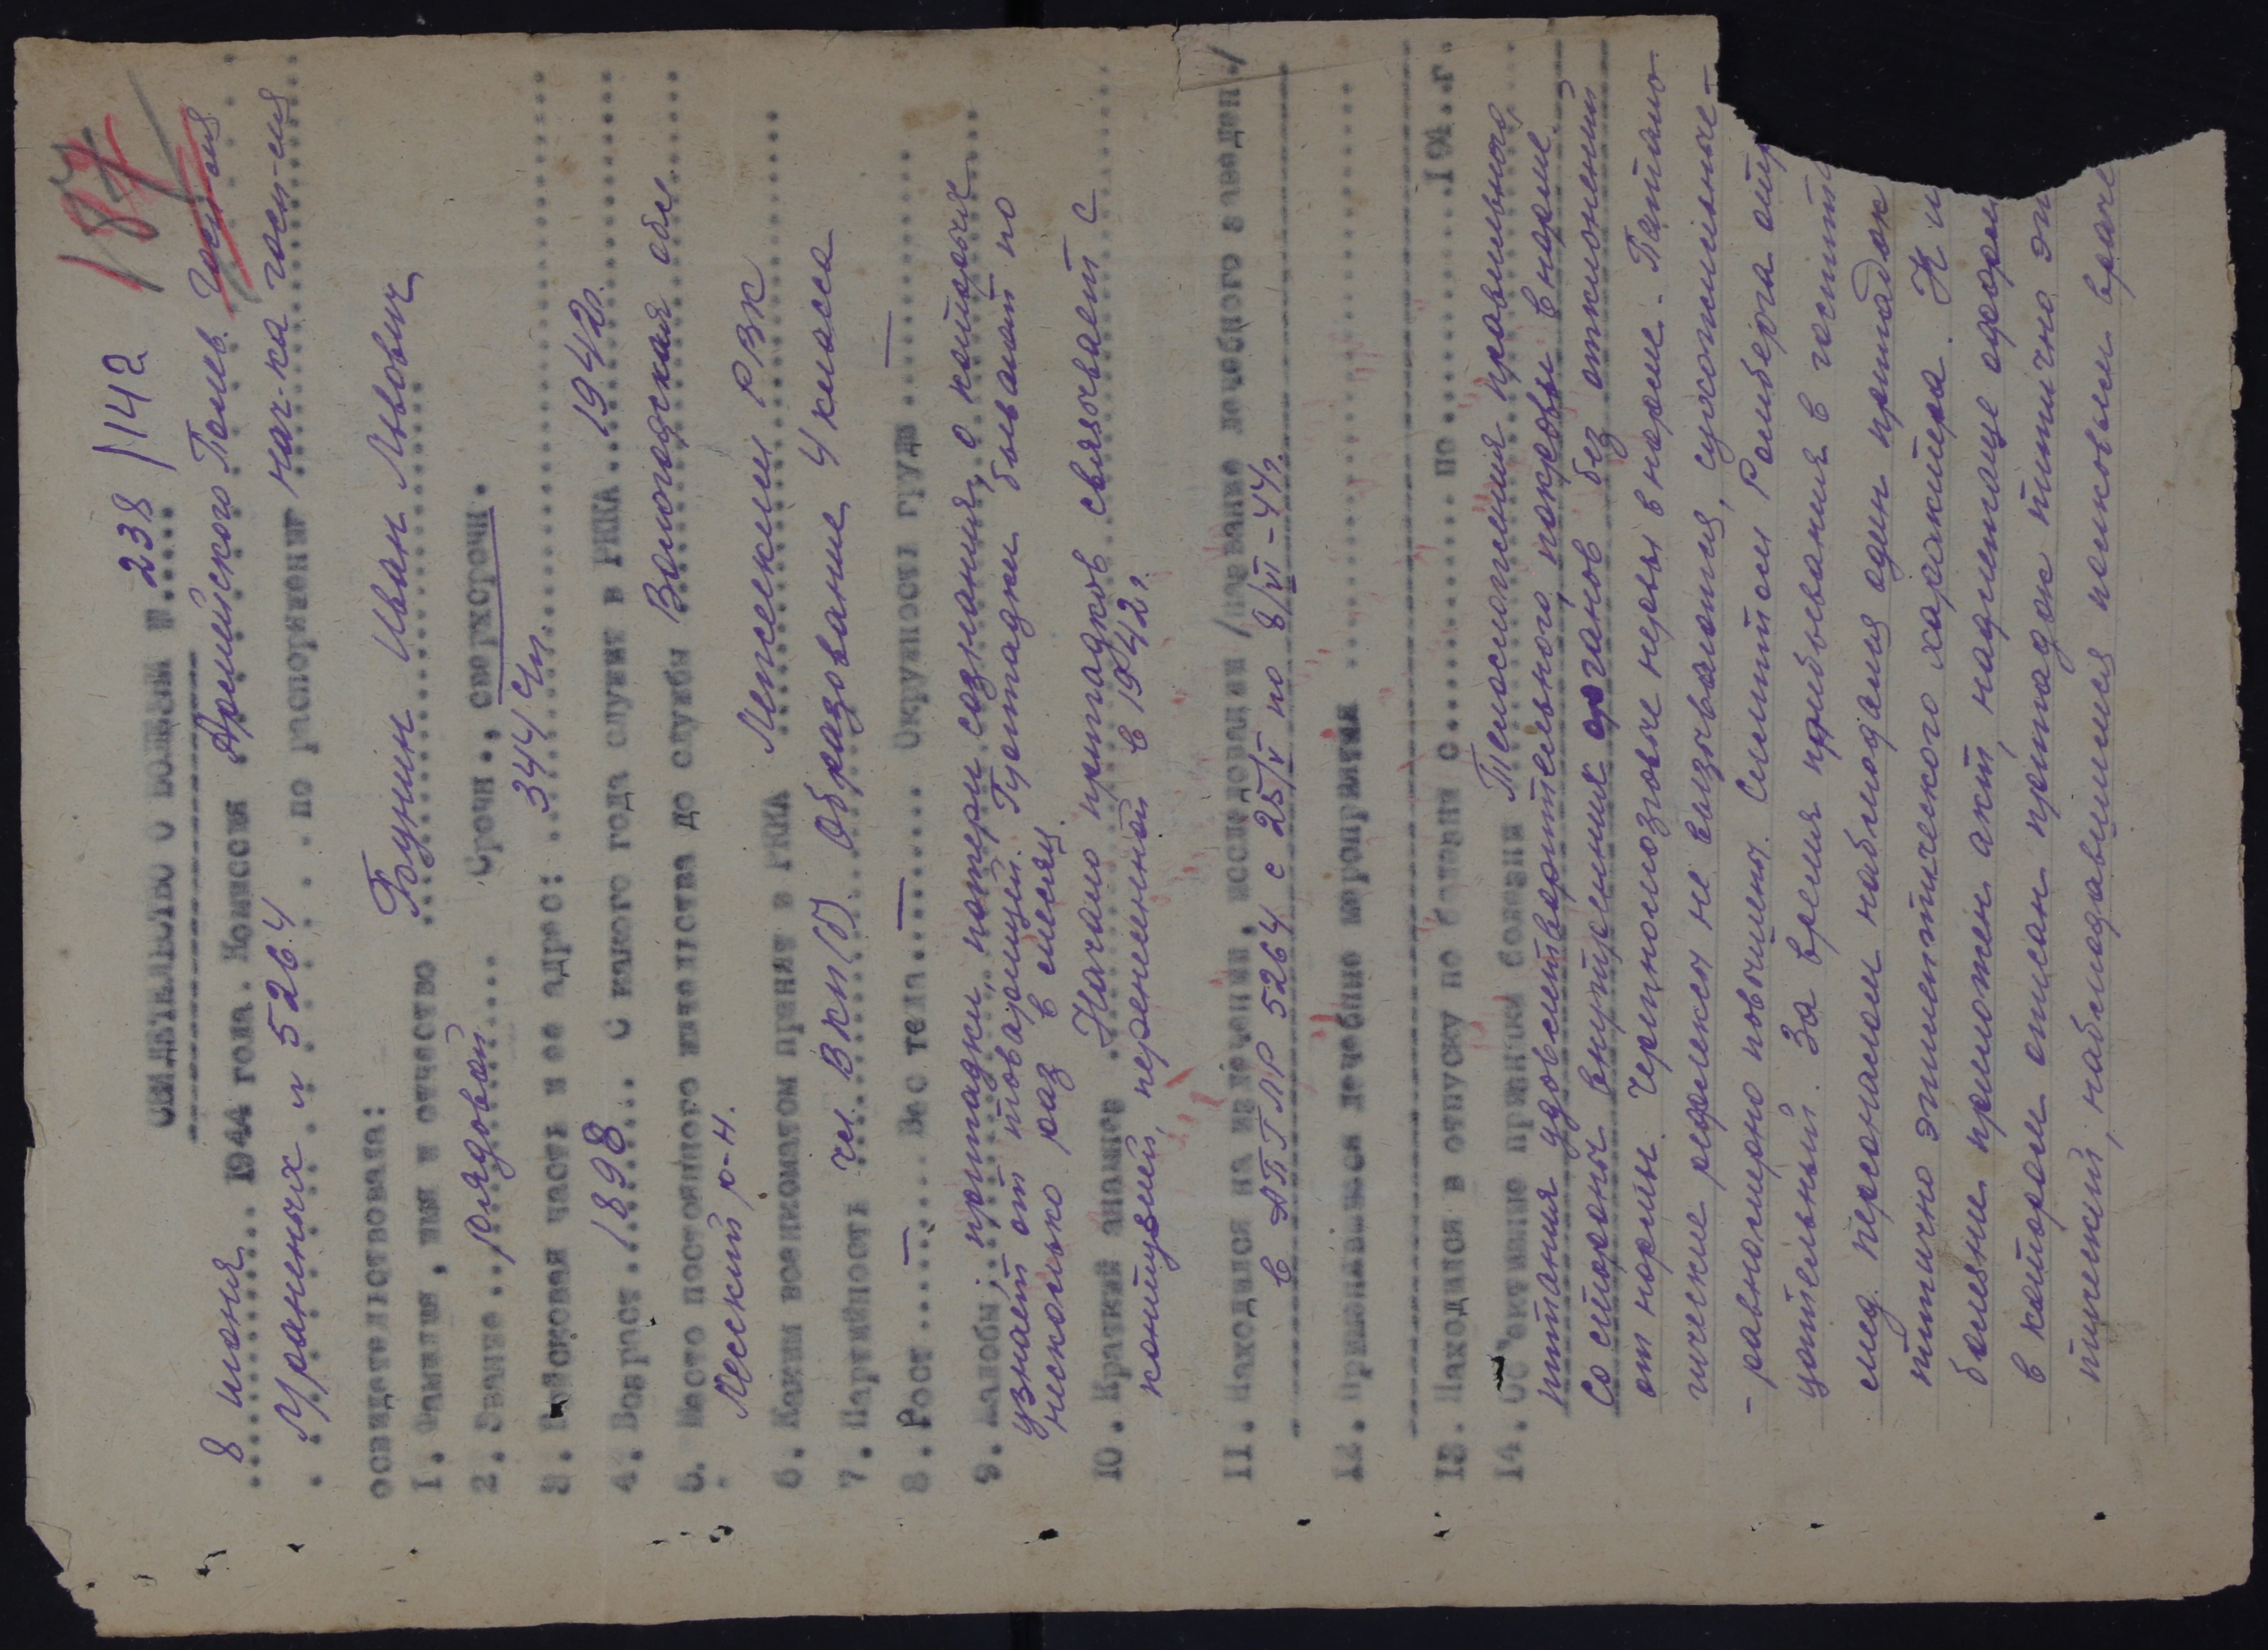 187
СВИДЕТЕЛЬСТВО О БОЛЕЗНИ № 238 /142
8 июня 1944 года. Комиссия Армейского Полев. Госпиталя
Раненых № 5264 по распоряжению нач-ка госп-ля
освидетельствовала:
1. Фамилия, имя и отчество Бунин Иван Львович
2. Звание рядовой Срочн., сверхсрочн.
3. Войсковая часть и ее адрес: 344 сп.
4. Возраст 1898 С какого года служит в РККА 1942г.
5. Место постоянного жительства до службы Вологодская обл.
Лесский р-н.
6. Каким военкоматом принят в РККА Лежским РВК
7. Партийность чл. ВКП(б) Образование 4 класса
8. Рост — Вес тела — Окружность груди —
9. Жалобы: припадки, потери сознания, о которых
узнает от товарищей. Припадки бывают по
несколько раз в месяц.
10. Краткий анамнез Начало припадков связывает с
контузией, перенесенной в 1942г.
11. Находился на излечении, исследовании /название лечебного заведен./
в АПГЛР 5264 с 25/V по 8/VI-44г.
12. Применявшиеся лечебные мероприятия
13. Находился в отпуску по болезни с по 194 г.
14. Об'ективные признаки болезни Телосложения правильного
питания удовлетворительного, покровы в норме.
Со стороны внутренних органов без отклонений
от нормы. Черепномозговые нервы в норме. Патоло-
гические рефлексы не вызываются, сухожильные -
- равномерно повышены. Симптом Ромберга отр
цательный. За время пребывания в госпит
мед. персоналом наблюдался один припадок
типично эпилептического характера. К и
болезни приложен акт, надлежаще оформ
в котором описан припадок типично эп
тический, наблюдавшийся полковым враче